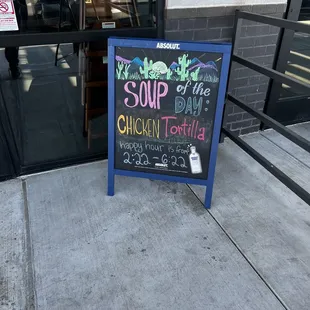 ABSOLUT.
SOUP of the
DAY:
CHICKEN Tortilla
Happy hour is from
2:22 - 6:22